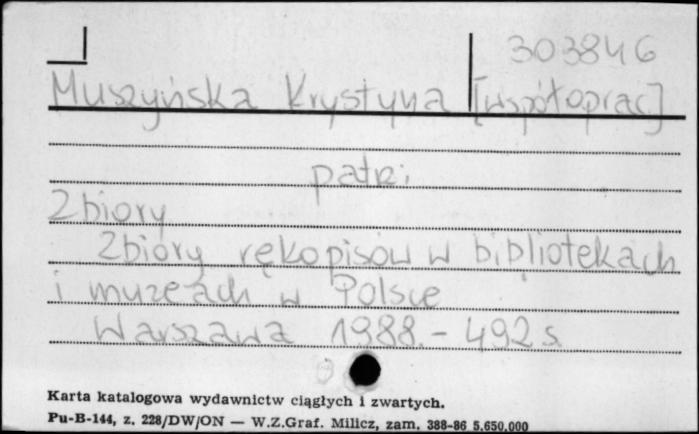 303846
Muszyńska Krystyna [współoprac]
patrz:
Zbiory
Zbiory rękopisów w bibliotekach
i muzeach w Polsce
Warszawa 1988. - 492 s.
Karta katalogowa wydawnictw ciągłych i zwartych.
Pu-B-144, z. 228/DW/ON — W.Z.Graf. Milicz, zam. 388-86 5.650.000